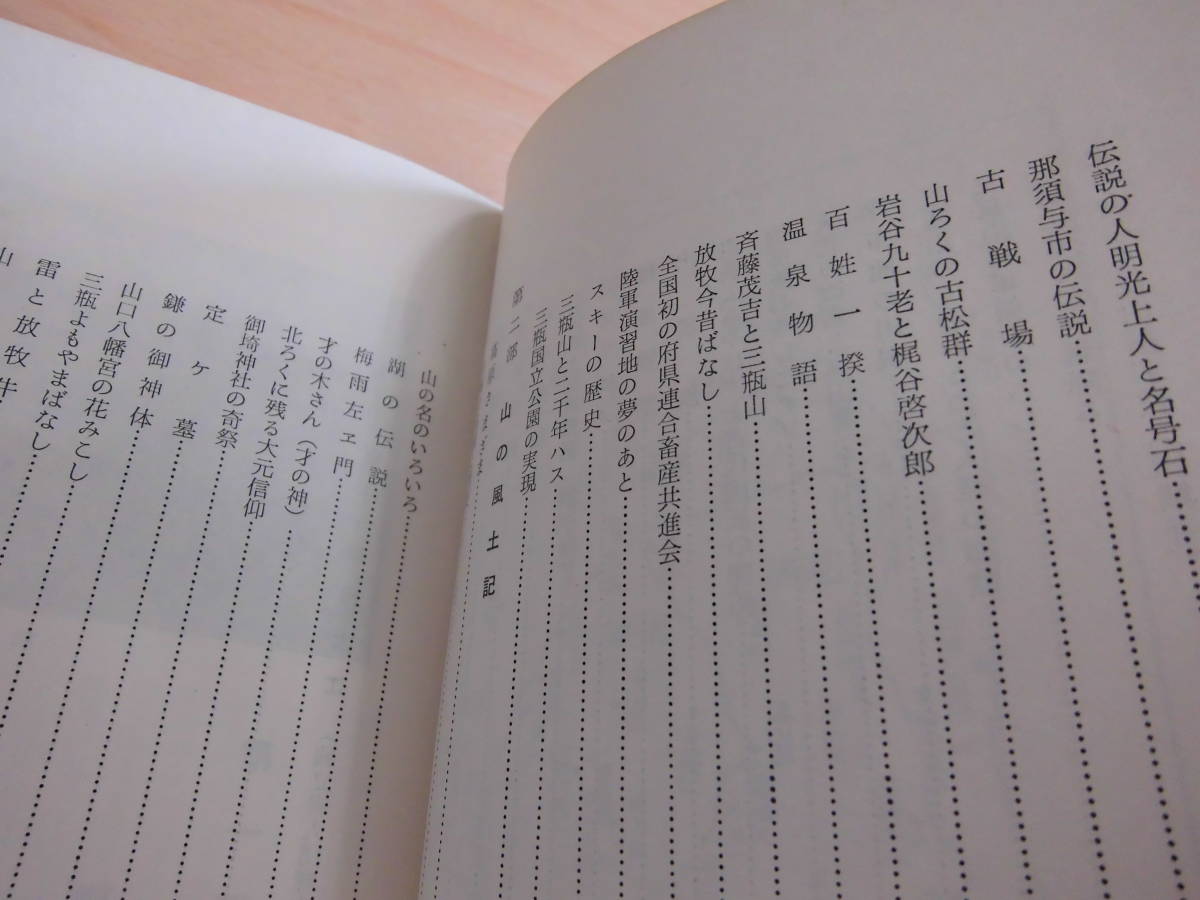 伝説の人明光上人と名号石
那須与市の伝説
古戦場
山ろくの古松群
岩谷九十老と梶谷啓次郎
百姓一揆
温泉物語
斉藤茂吉と三瓶山
放牧今昔ばなし
全国初の府県連合畜産共進会
陸軍演習地の夢のあと
スキーの歴史
三瓶山と二千年ハス
三瓶国立公園の実現
第二部 山の風土記
高原さまざま
山の名のいろいろ
湖の伝説
梅雨左ヱ門
才の木さん（才の神）
北ろくに残る大元信仰
御埼神社の奇祭
定ヶ墓
鎌の御神体
山口八幡宮の花みこし
三瓶よもやまばなし
雷と放牧牛
山